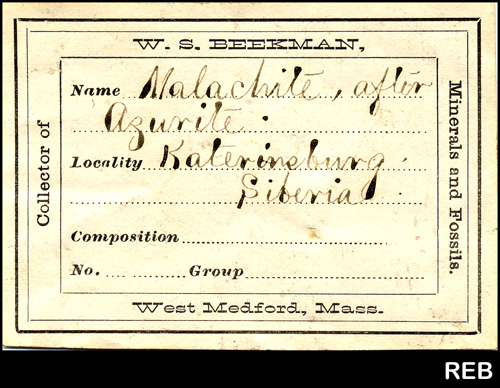 W. S. BEEKMAN,
Collector of
Minerals and Fossils.
Name Malachite, after
Azurite.
Locality Katerinsburg.
Siberia
Composition
No. Group
West Medford, Mass.
REB